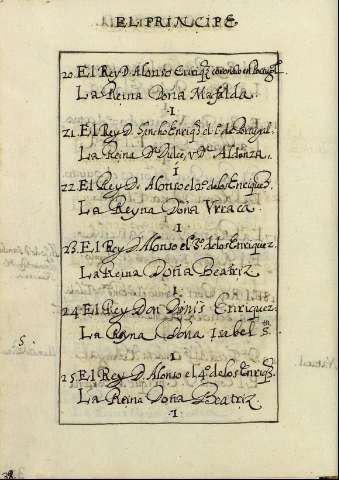 EL PRINCIPE
20. El Rey D. Alonso Enriq̃z coronado en Portugal.
La Reina Doña Mafalda.
I
21. El Rey D. Sancho Enriq̃z el 1º de Portugal.
La Reina Dª Dulce, v Dª Aldonza.
I
22. El Rey D. Alonso el 2º de los Enriquez.
La Reyna Doña Vrraca.
I
23. El Rey D. Alonso el 3º de los Enriquez.
La Reina Doña Beatriz
I
24. El Rey Don Dinis Enriquez.
La Reina Doña Isabel Sta.
I
25. El Rey D. Alonso el 4º de los Enriq̃z.
La Reina Doña Beatriz
I
5.